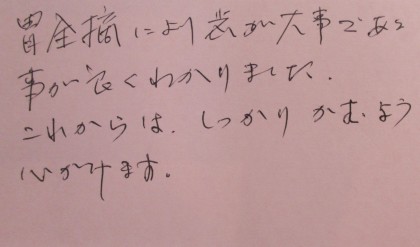 胃全摘により歯が大事である
事が良くわかりました.
これからは.しっかりかむよう
心がけます。